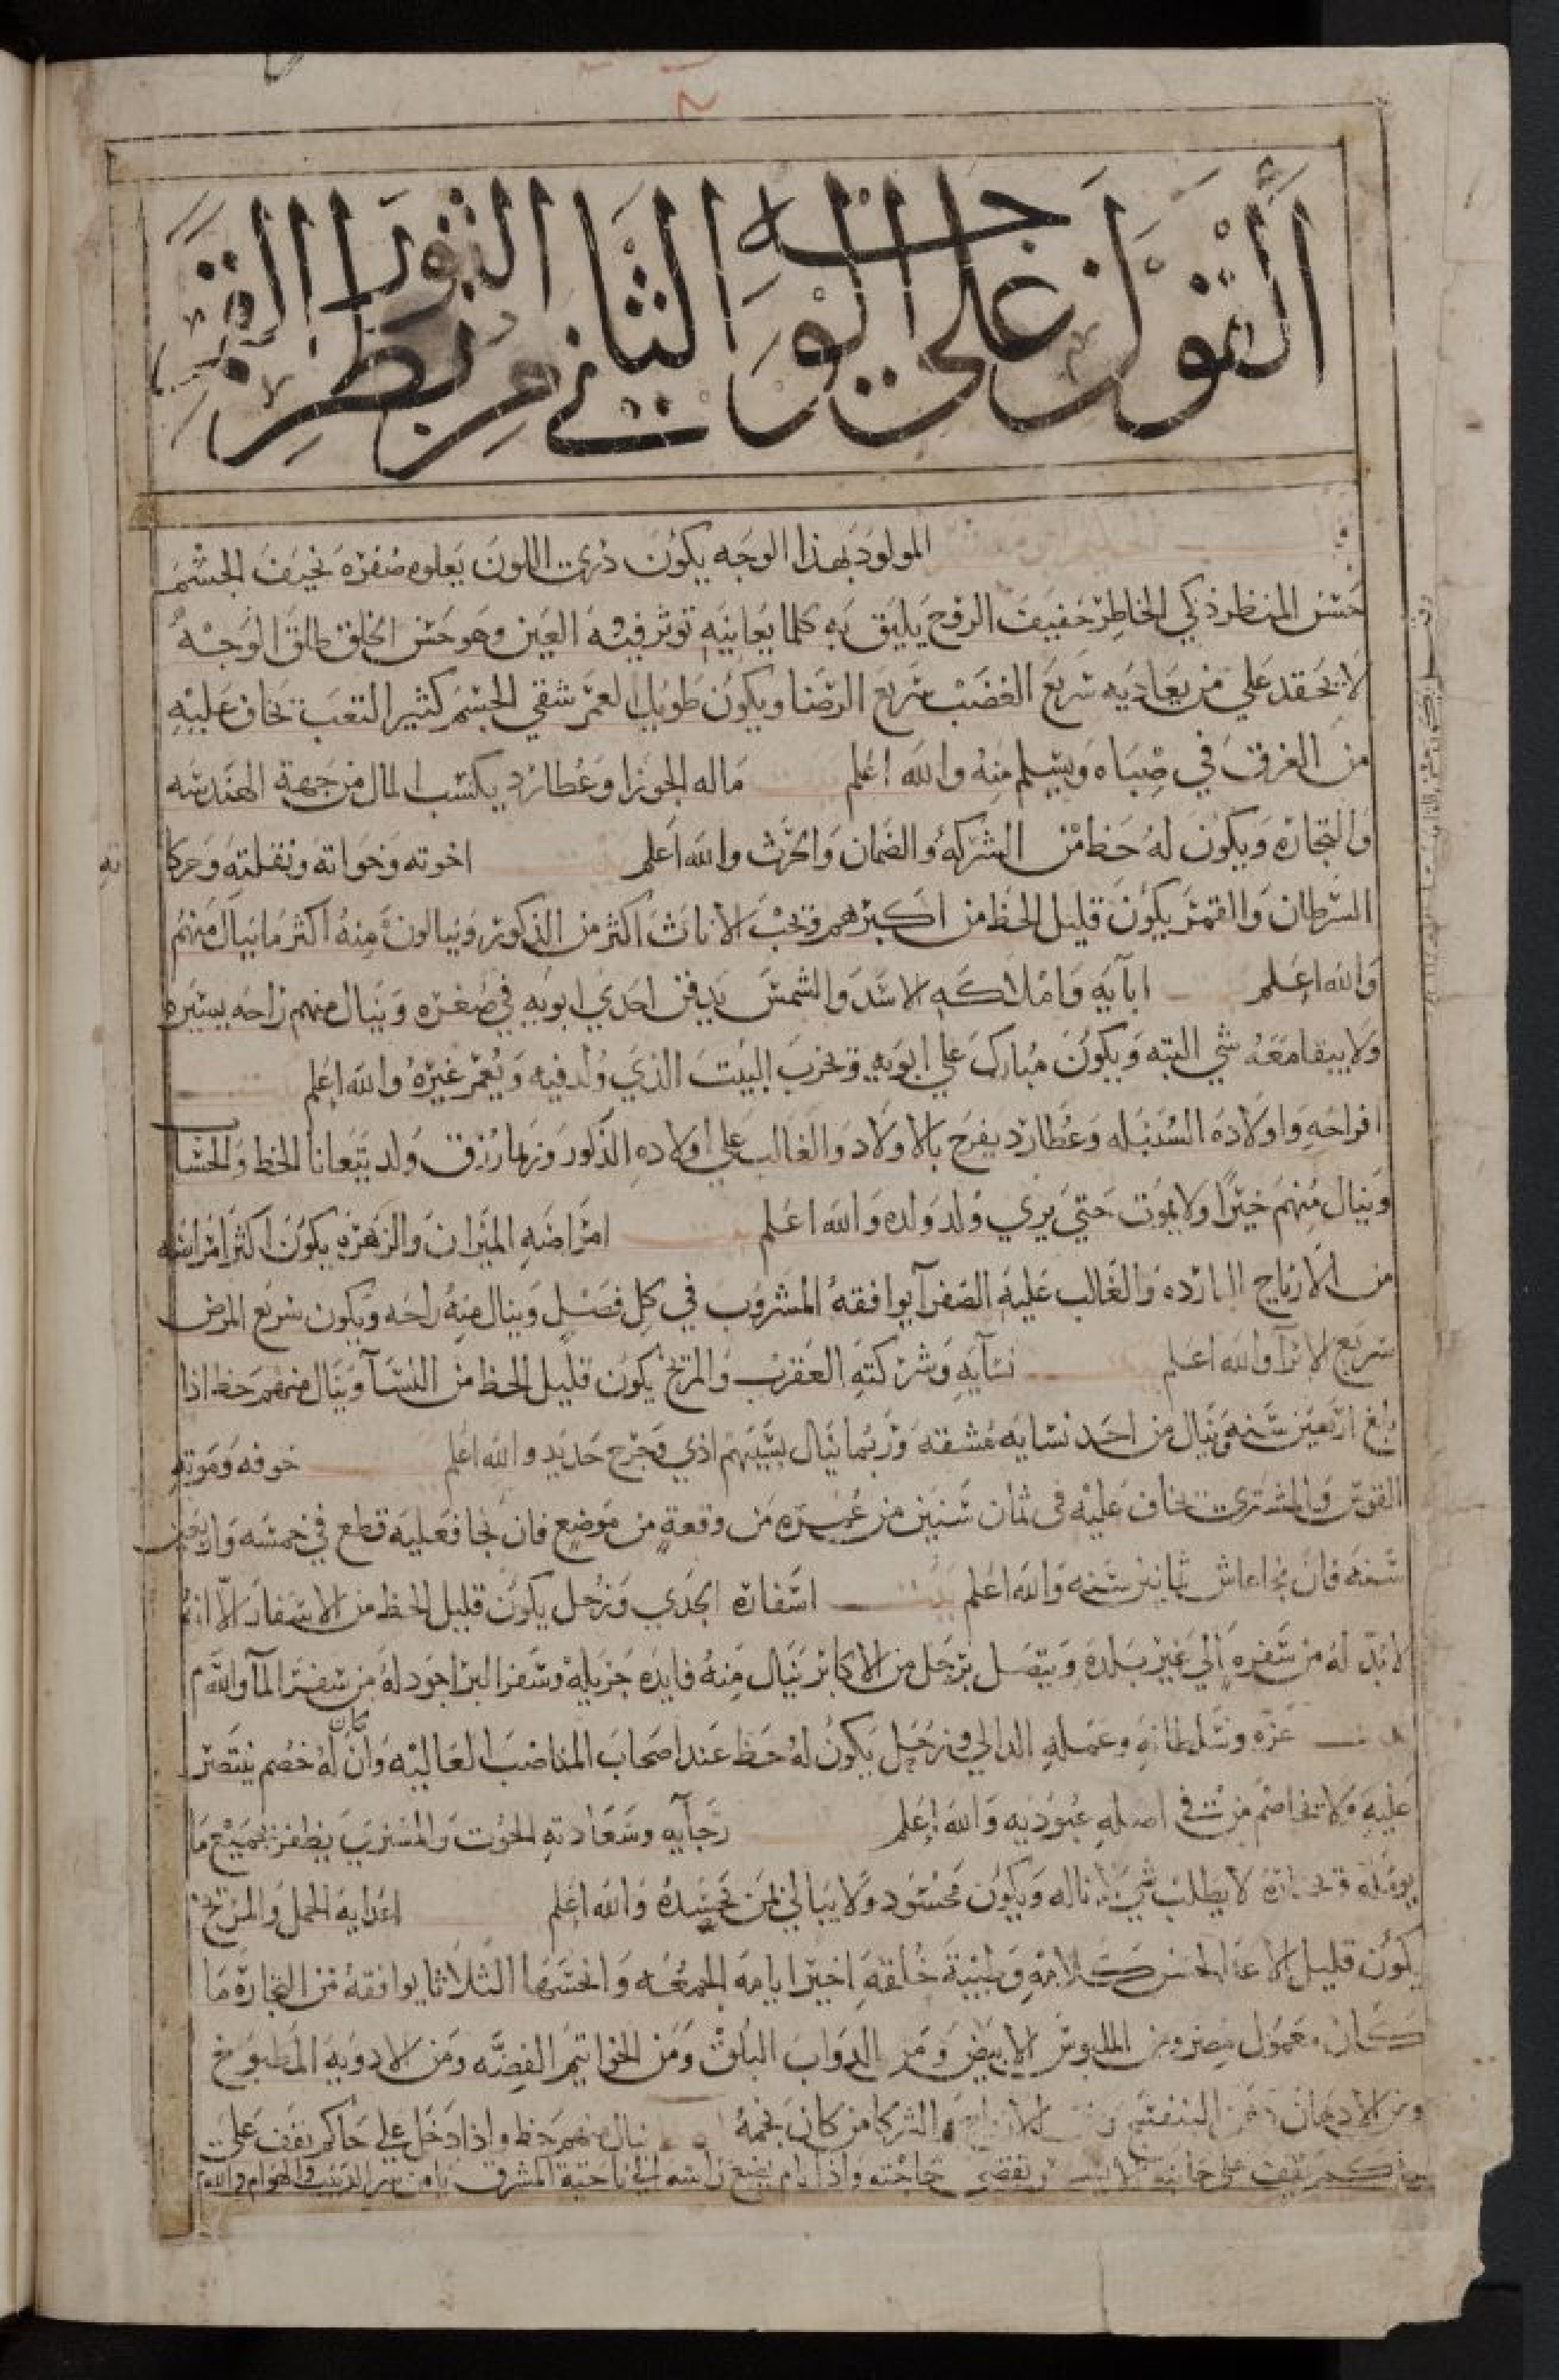 القول على الوجه الثاني من برج الثور
المولود بهذا الوجه يكون دري اللون يعلوه صفره نحيف الجسم
حسن المنظر ذكي الخاطر خفيف الروح يليق به كلما يعانيه توثر فيه العين وهو حسن الخلق طالق الوجه
لا يحقد علي من يعاديه سريع الغضب سريع الرضا ويكون طويل العمر شقي الجسم كثير التعب يخاف عليه
من الغرق في صباه ويسلم منه والله اعلم ماله الجوزا وعطارد يكتسب المال من جهة الهندسه
والتجاره ويكون له حظ من الشركه والضمان والحرث والله اعلم اخوته وخواته ونقلته وحركا
ته
السرطان والقمر يكون قليل الحظ من اكبرهم ويحب الاناث اكثر من الذكور وينالون منه اكثر ما ينال منهم
والله اعلم ابايه واملاكه الاسد والشمس يدفن احدي ابويه في صغره وينال منهم راحه يسيره
ولا يبقا معه شي البته ويكون مبارك علي ابويه ويخرب البيت الذي ولد فيه ويعمر غيره والله اعلم
افراحه واولاده السنبله وعطارد يفرح بالاولاد والغالب علي اولاده الذكور وربما رزق ولد يتعانا الخط والحساب
وينال منهم خيرا ولا يموت حتي يري ولد ولده والله اعلم امراضه الميزان والزهره يكون اكثر امراضه
من الارياح البارده والغالب عليه الصفرا يوافقه المشروب في كل فصل وينال منه راحه ويكون سريع المرض
سريع الابرا والله اعلم نسايه وشركته العقرب والمريخ يكون قليل الحظ من النسا وينال منهم حظ اذا
بلغ اربعين سنه وينال من احد نسايه عشقه وربما ينال بسببهم اذي وجرح حديد والله اعلم خوفه وموته
القوس والمشتري يخاف عليه في ثمان سنين من عمره من وقعة من موضع فان نجا فعليه قطع في خمسه واربعين
سنه فان نجا عاش ثمانين سنه والله اعلم اسفاره الجدي وزحل يكون قليل الحظ من الاسفار الا انه
لابد له من سفره الي غير بلده ويتصل برجل من الاكابر ينال منه فايده جزيله وسفر البر اجود له من سفر الما والله
عزه وسلطانه وعمله الدالي وزحل يكون له حظ عند اصحاب المناصب العاليه وان كان له خصم ينتصر
عليه ولا يخاصم من في اصله عبوديه والله اعلم رجايه وسعادته الحوت والمشتري يظفر بجميع ما
يومله لا يطلب شي الا ناله ويكون محسود ولا يبالي لمن يحسده والله اعلم اعدايه الحمل والمريخ
يكون قليل الاعدا لحسن كلامه وطيبة خلقه اخير ايامه الجمعه وانحسها الثلاثا يوافقه من التجارة ما
كان معمول مصر ومن الملبوس الابيض ومن الدواب البلق ومن الخواتيم الفضه ومن الادويه المطبوخ
ومن الادهان دهن البنفسج والشركا من كان نجمه ينال منهم حظ واذا دخل علي حاكم يقف علي
حاجته واذا نام يضع راسه الي ناحية المشرق